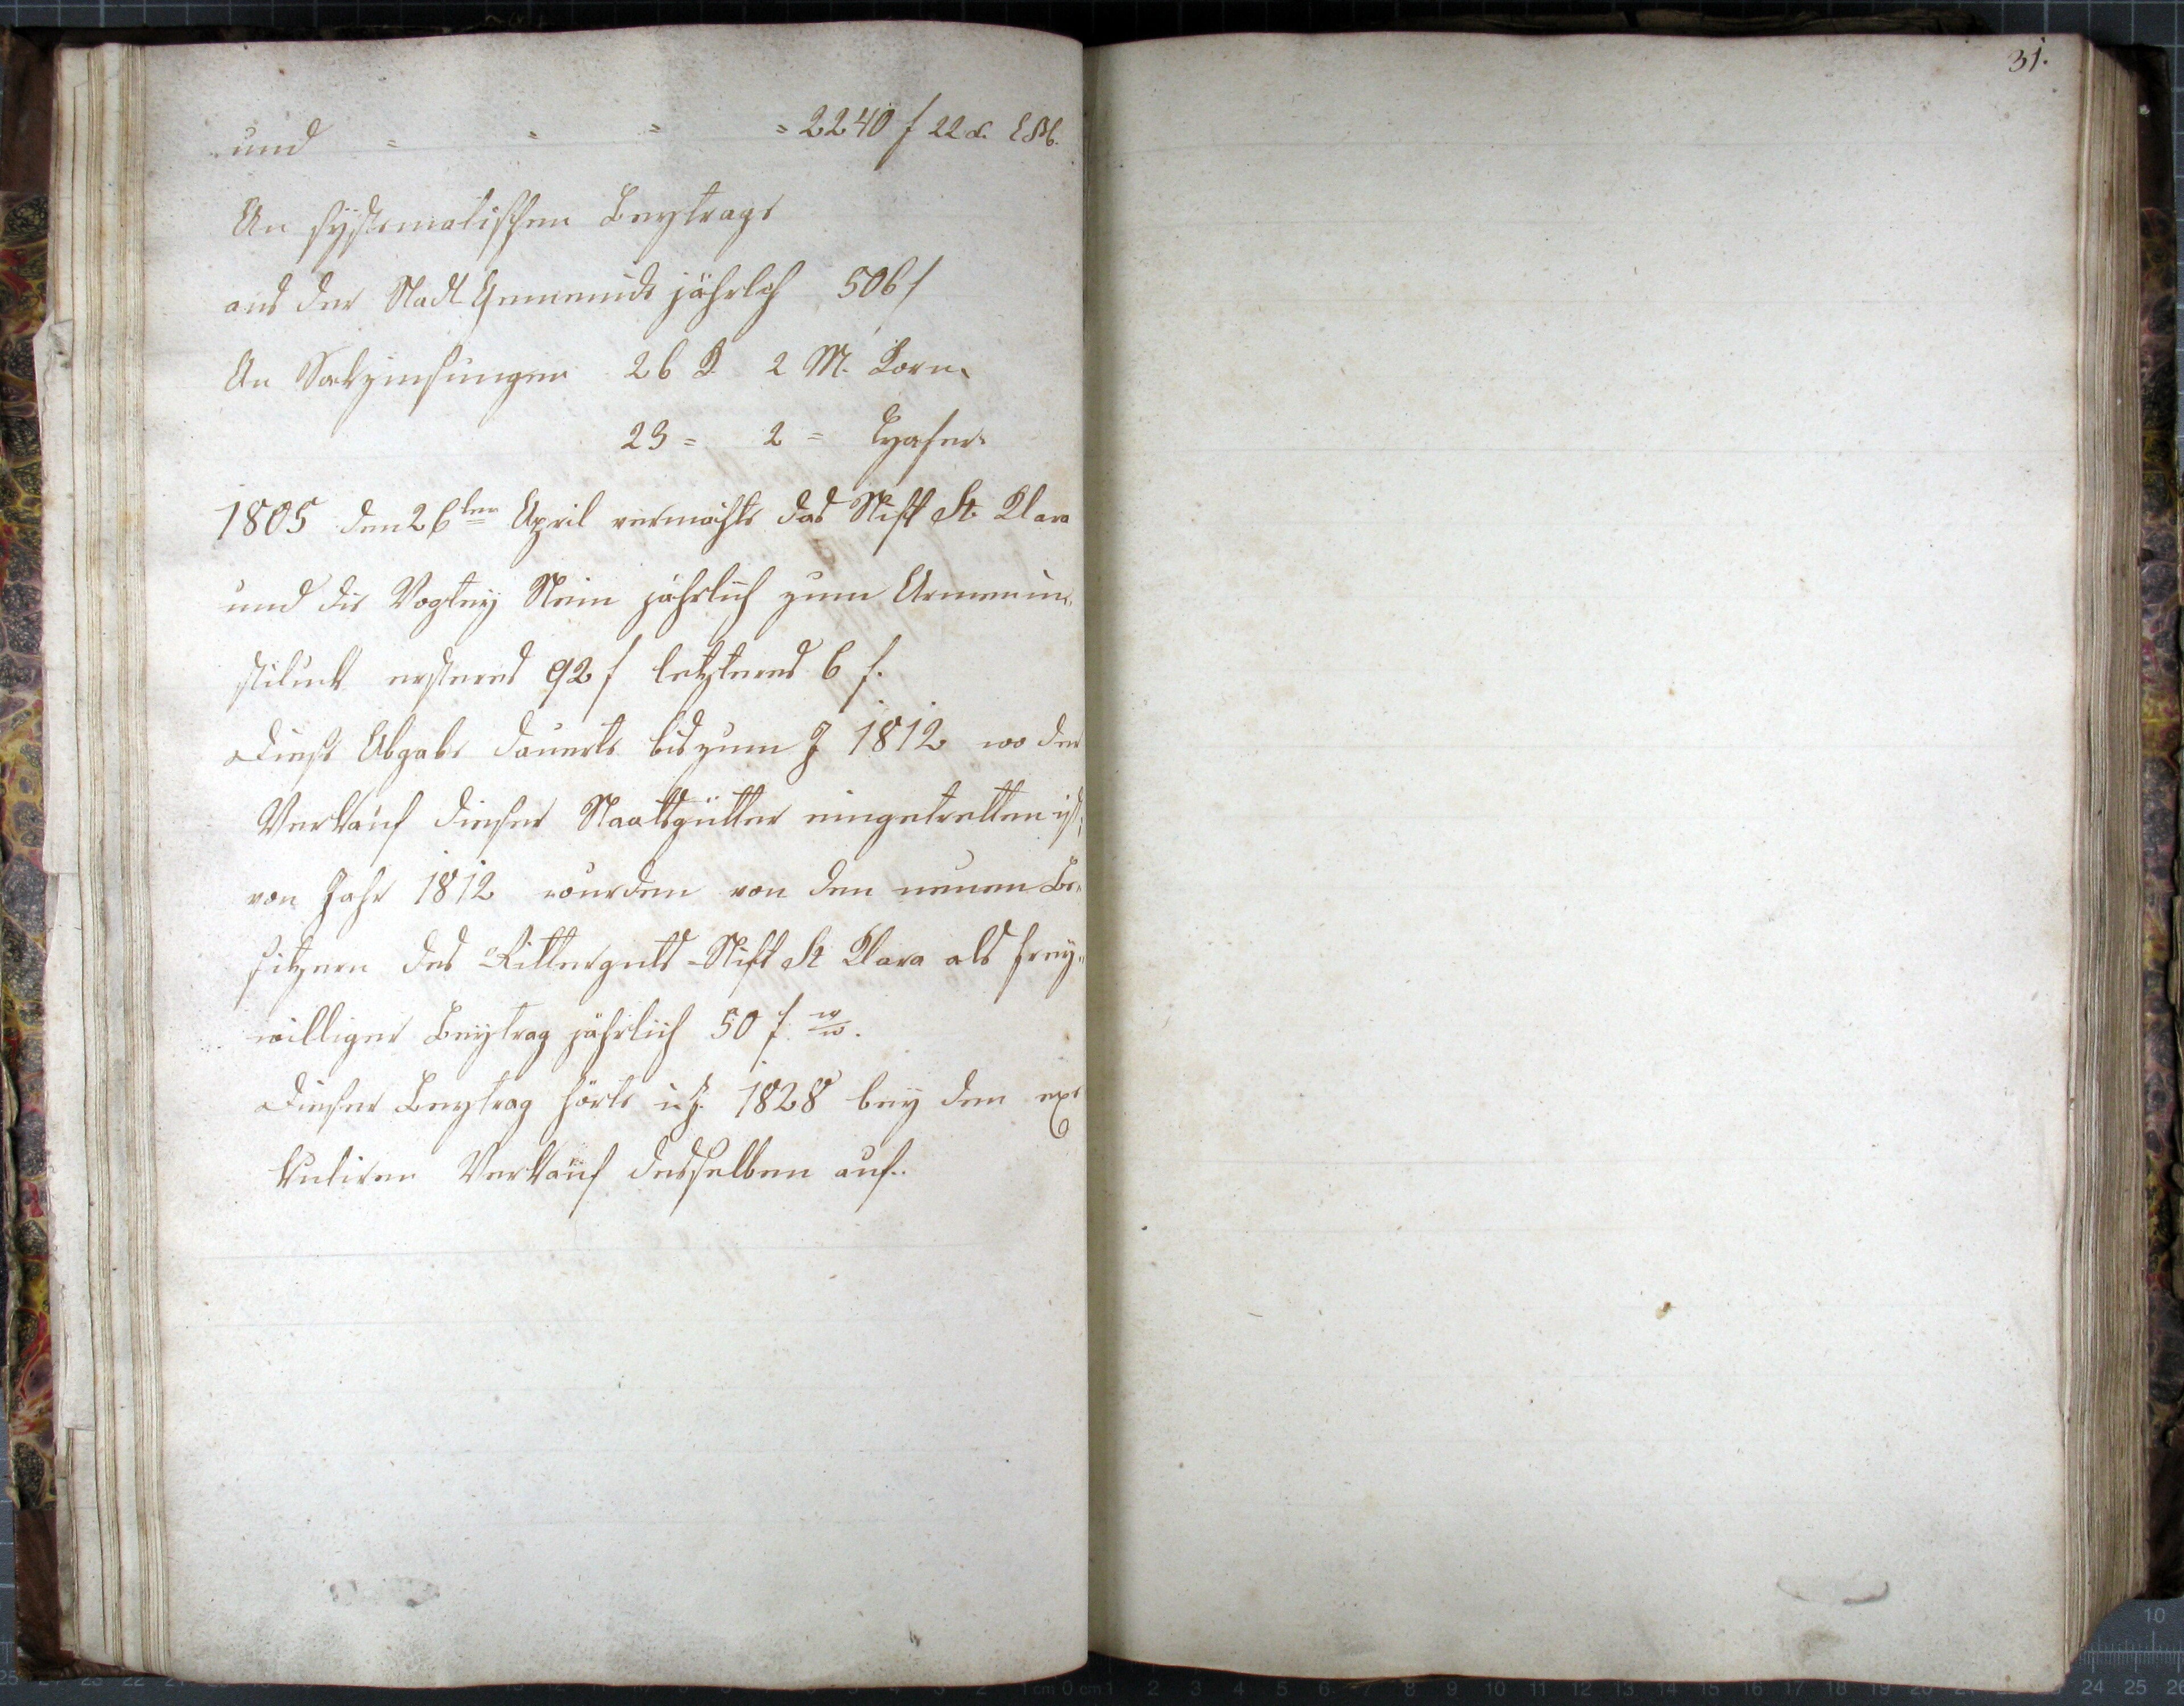 und = = = = 2240 f 22 x.
An systemalischen Beytrage
aus der Stadt Gemeinde jährlich 506 f
An Sackzinsungen 26 K 2 M. Korn.
23 = 2 = Hafer.
1805 den 26ten April vermachte das Stift St. Klara
und die Vogtey Stein jährlich zum Armenin,
stitute ersteres 92 f letzteres 6 f.
Diese Abgabe dauerte bis zum J 1812 wo der
Verkauf dieser Staatsgütter eingetretten ist;
von Jahr 1812 wurden von den neuen Be,
sitzern des Ritterguts-Stift St Klara als frey,
williger Beytrag jährlich 50 f. W W.
Dieser Beytrag hörte i. J. 1828 bey dem exe
kutiven Verkauf desselben auf.
31.